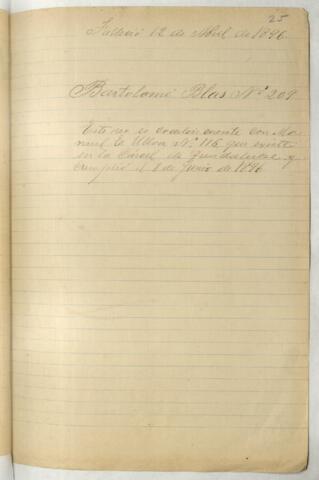 25
Falleció 12 de Abril de 1896.
Bartolomé Blas Nº 209
Este reo es con Ma-
nuel Ulloa Nº 115 que existe
en la Cárcel de Guadalupe y
cumplió el 8 de Junio de 1896